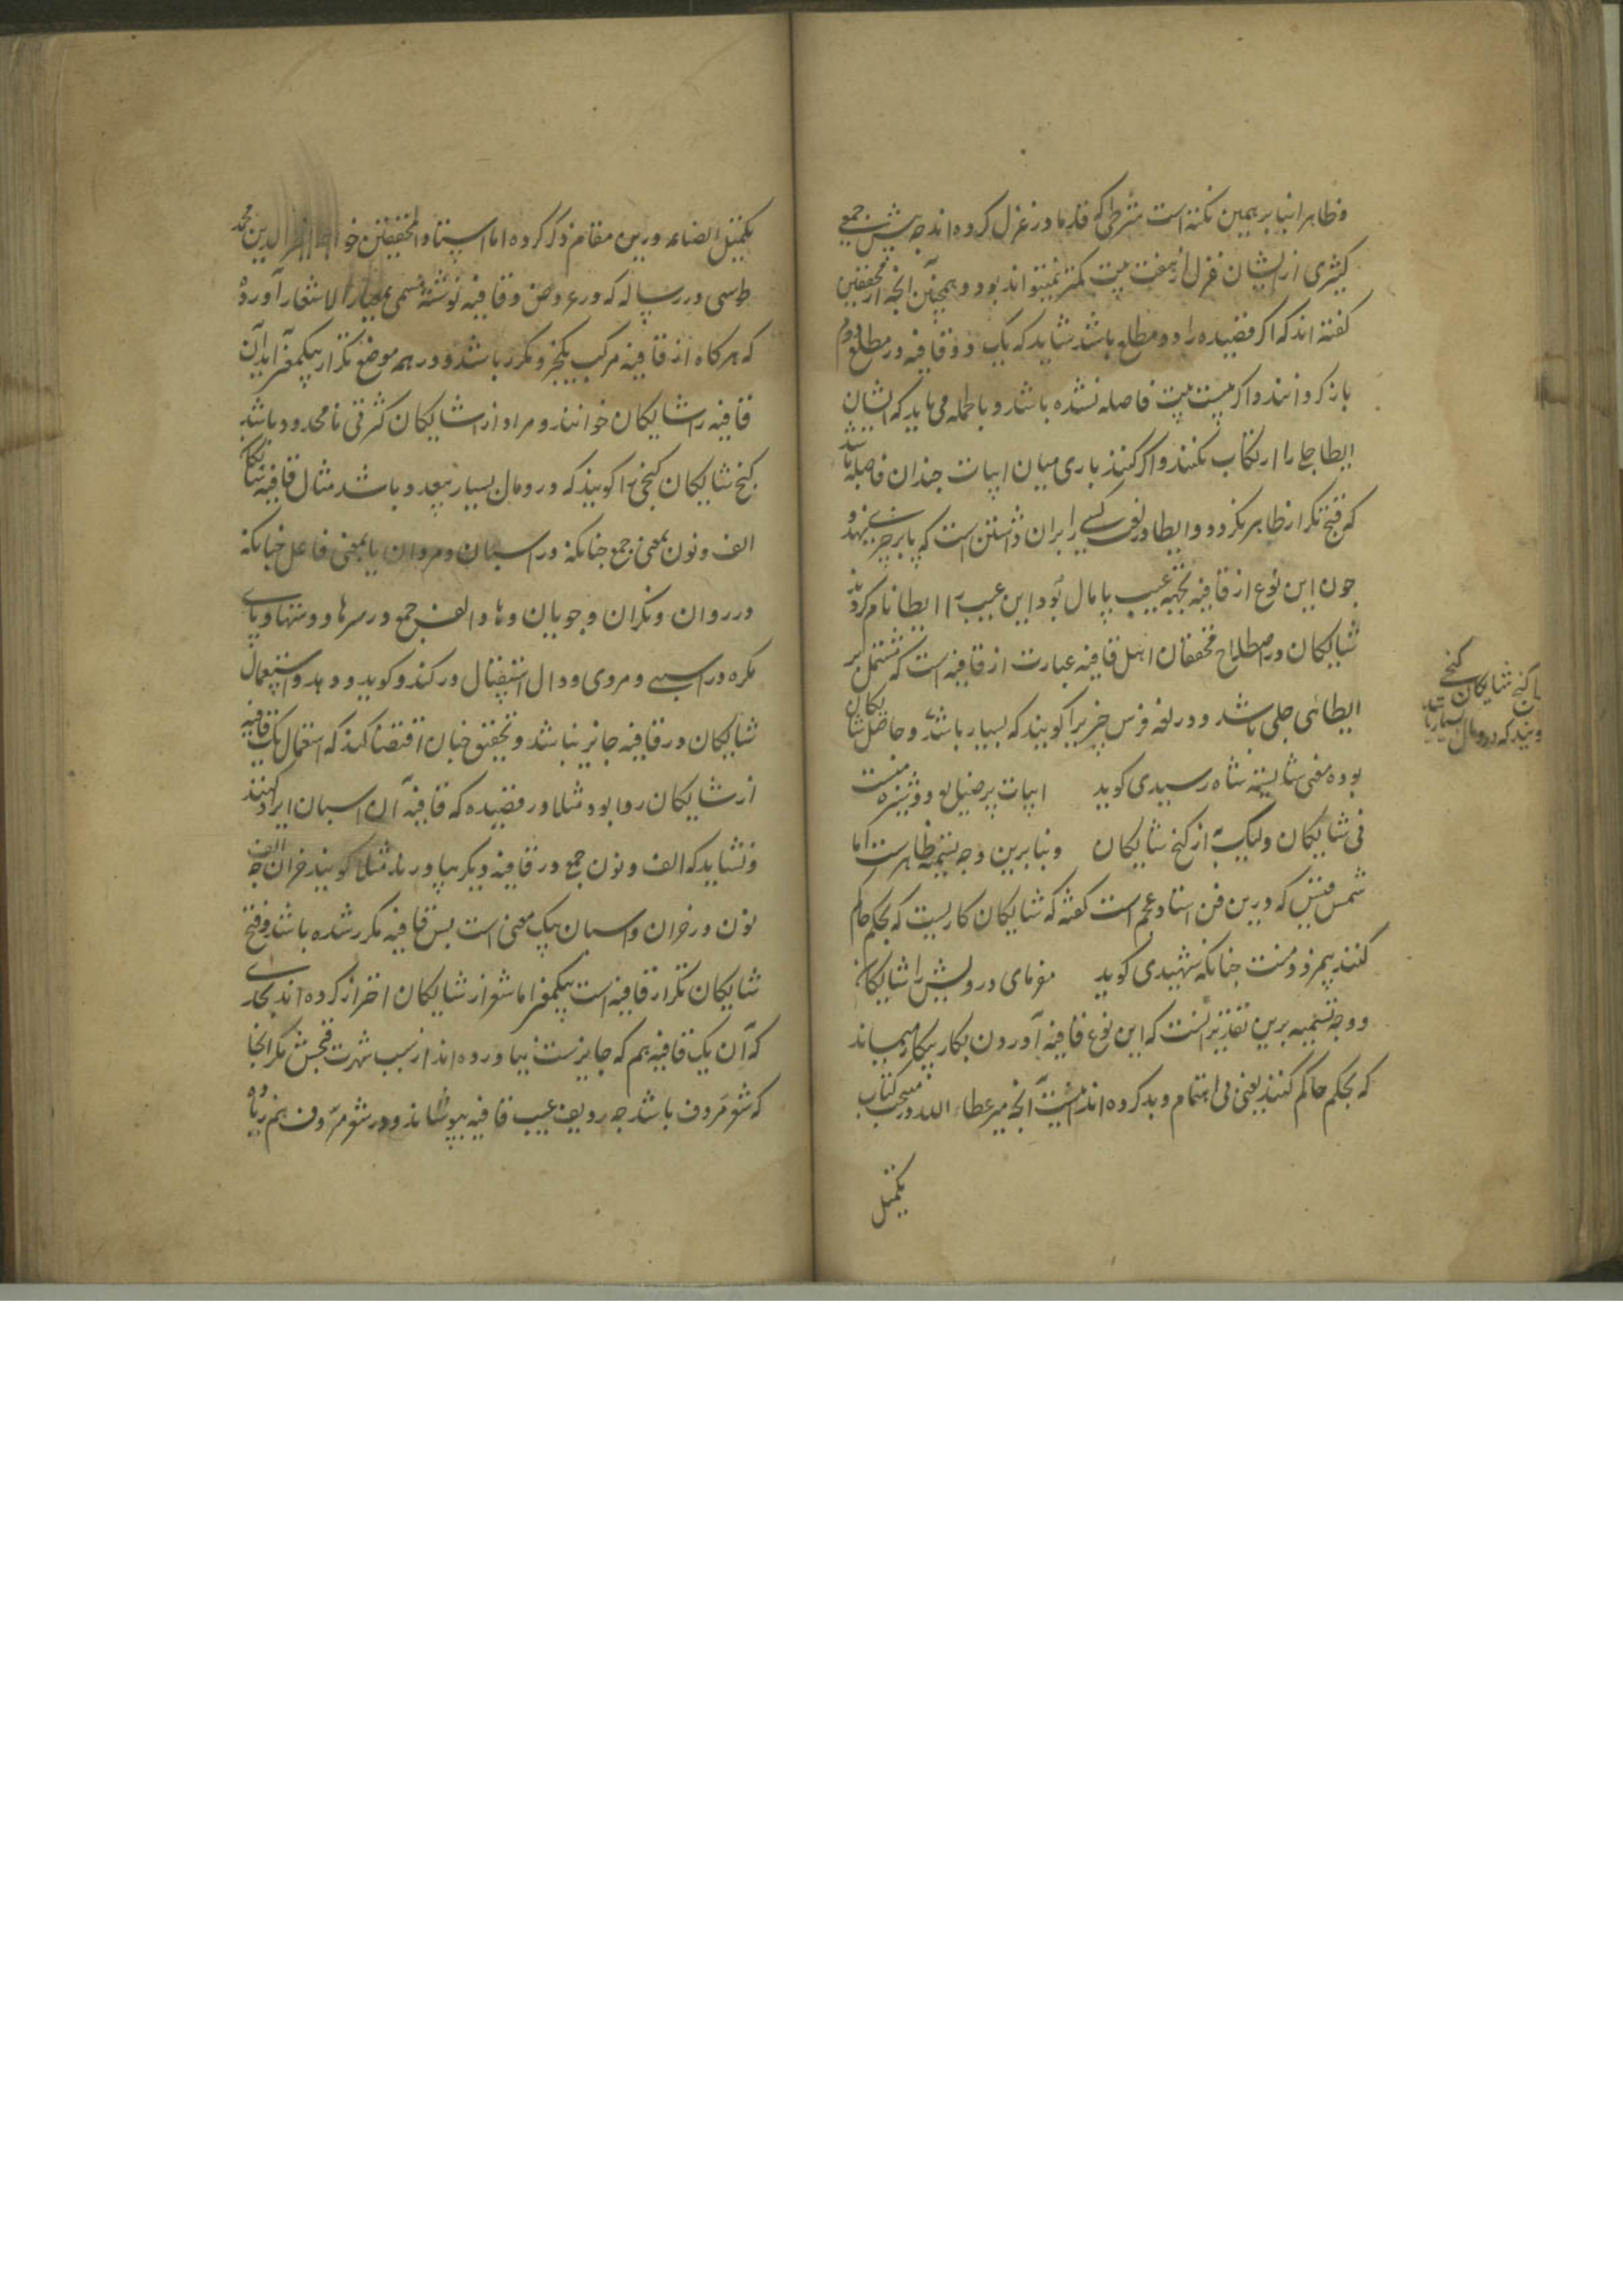 و ظاهرا بنابر همین نکته است شرطی که قدما در غزل کرده اند چه پیش جمعی
کثیری از ایشان غزل از هفت بیت کمتر نمیتواند بود و همچنین آنچه از محققین
گفته اند که اگر قصیده را دو مطلع باشد شاید که یک دو قافیه در مطلع دوم
باز گردانند و اگر بیست بیت فاصله نشده باشد و باجمله می باید که ایشان
ایطا جلی را ارتکاب نکنند و اگر کنند باری میان ابیات چندان فاصله باشد
که قبح تکرار ظاهر نکردد و ایطا در لغت کسی را بران داشتن است که پا بر چیزی نهد و
چون این نوع از قافیه بجهه عیب پامال بود این عیب را ایطا نام کردند
شایکان در اصطلاح محققان اهل قافیه عبارت از قافیه است که مشتمل بر
ایطائی جلی باشد و در لغه فرس چیزیرا کویند که بسیار باشد و حاصل شایکان
بوده معنی شایسته شاه رسیدی کوید ابیات پر خیال و دوشیزه منست
فی شایکان ولیک به از کنج شایکان و بنابرین وجه تسمیه ظاهرست اما
شمس قیس که درین فن استاد عجم است کفته که شایکان کاریست که بحکم حاکم
کنند بیمزد و منت چنانکه شهیدی کوید مفرمای درویش را شایکان
و وجه تسمیه برین تقدیر آنست که این نوع قافیه آوردن بکار بیکار میماند
که بحکم حاکم کنند یعنی بی اهتمام و بد کرده اند اینست آنچه میر عطاء الله در کتاب
تکمیل
یا کنج شایکان کنجی
کویند که درو مال بسیار باشد
تکمیل الصناعه درین مقام ذکر کرده اما استاد المحققین خواجه نصیر الدین محمد
طوسی در رساله که در عروض و قافیه نوشته مسمی بمعیار الاشعار آورده
که هرکاه از قافیه مرکب یکجزو مکرر باشد و در همه موضع تکرار بیکمعنی آید آن
قافیه را شایکان خوانند و مراد از شایکان کثرتی نامحدود باشد
کنج شایکان کنجی را کویند که درو مال بسیار بیعد و باشد مثال قافیه شایکان
الف و نون بمعنی جمع چنانکه در اسبان و مردان یا بمعنی فاعل چنانکه
در روان و نکران و جویان و ها و الف جمع در سرها و دستها و یای
نکره در اسبی و مردی و دال استقبال در کند و کوید و دهد و استعمال
شایکان در قافیه جایز نباشد و تحقیق چنان اقتضا کند که استعمال یک قافیه
از شایکان روا بود مثلا در قصیده که قافیه آن اسبان ایراد کنند
و نشاید که الف و نون جمع در قافیه دیکر بیاورند مثلا کویند خران چه الف
نون در خران و اسبان بیک معنی است پس قافیه مکرر شده باشد و قبح
شایکان تکرار قافیه است بیکمعنی اما شعرا از شایکان احتراز کرده اند بحدی
که آن یک قافیه هم که جایزست نیاورده اند از سبب شهرت قبحش مکر آنجا
که شعر مردف باشد چه ردیف عیب قافیه بپوشاند و در شعر مردف هم زیاده